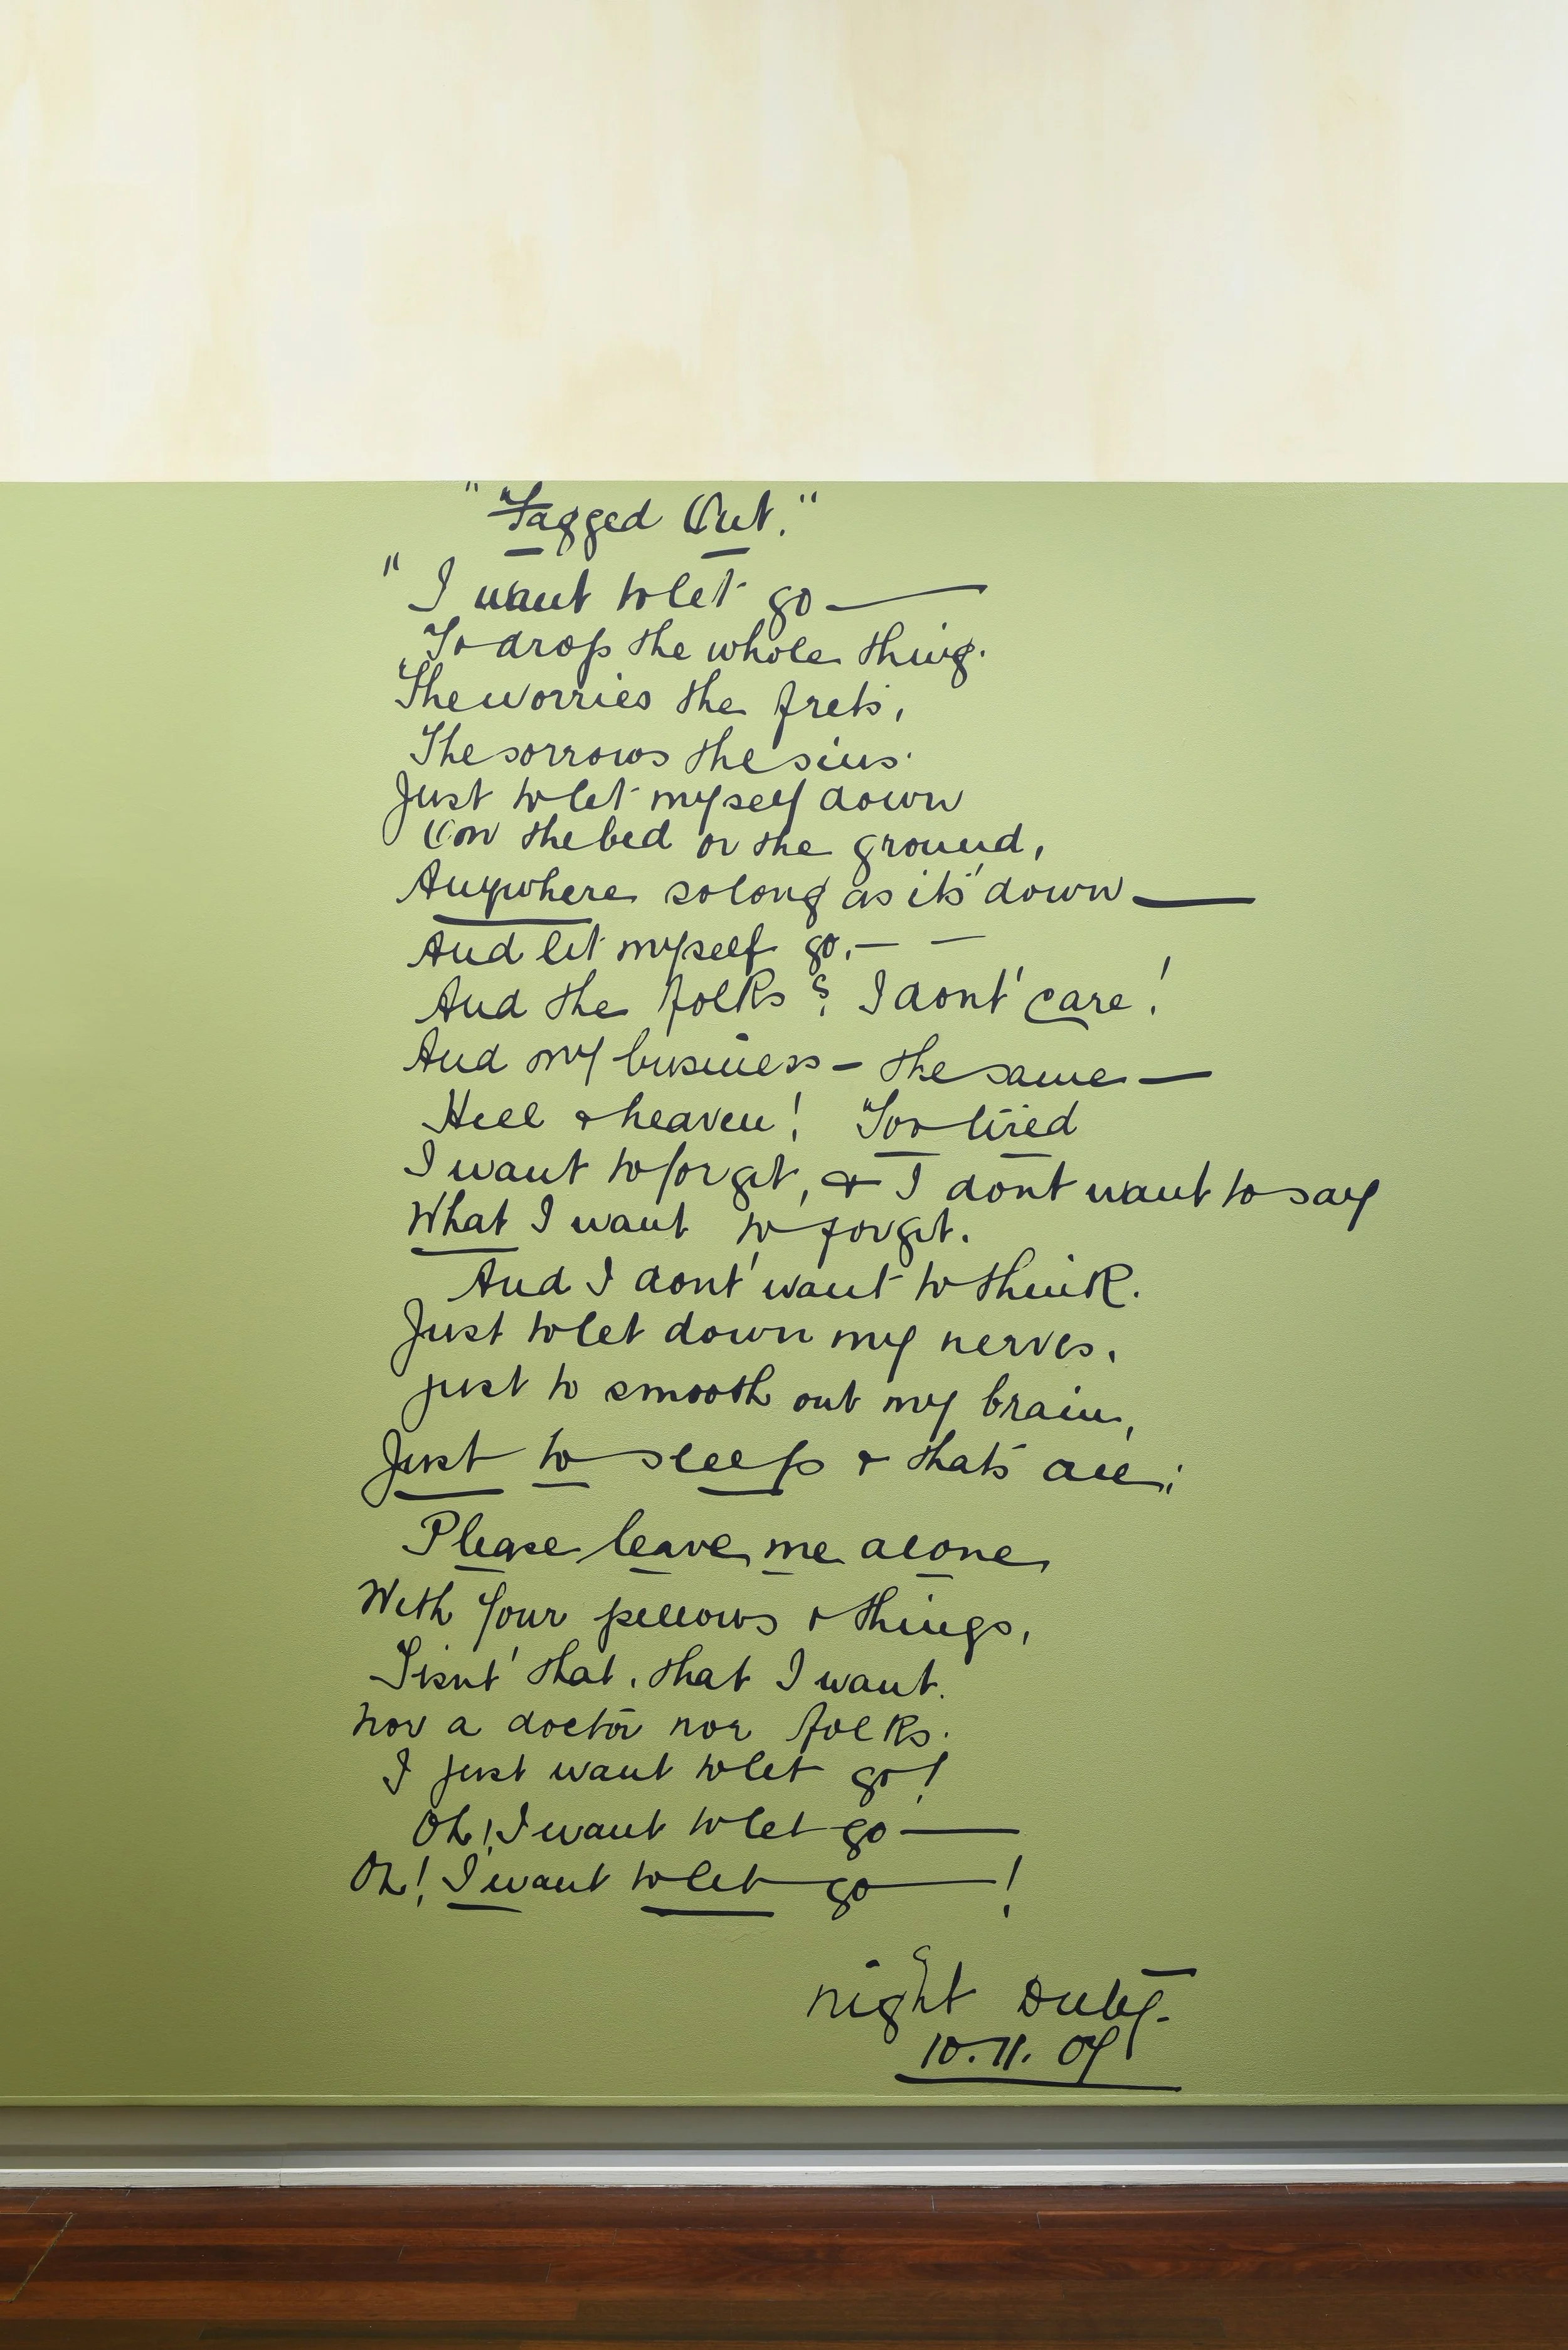 " "Fagged Out."
" I want to let go —
To drop the whole thing.
The worries the frets,
The sorrows the sins.
Just to let myself down
On the bed or the ground,
Anywhere so long as its' down —
And let myself go, — —
And the folks? I dont' care!
And my business — the same —
Hell & heaven! Too tired
I want to forget, & I dont want to say
What I want to forget.
And I dont' want to think.
Just to let down my nerves,
just to smooth out my brain,
Just to sleep & thats' all;
Please leave me alone
With your pillows & things,
T'isnt' that, that I want.
nor a doctor nor folks.
I just want to let go!
Oh! I want to let go —
Oh! I want to let go — !
night Duty.
10.11.09